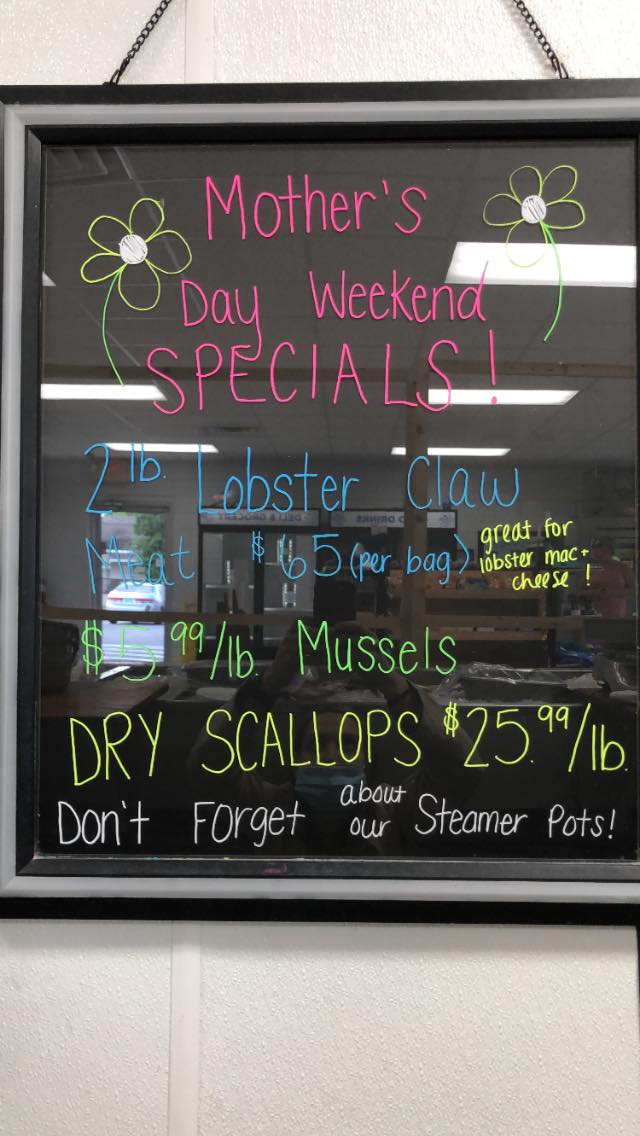 Mother's
Day Weekend
SPECIALS!
2 lb. Lobster Claw
Meat $65 (per bag) great for
lobster mac +
cheese!
$5.99/lb. Mussels
DRY SCALLOPS $25.99/lb.
Don't Forget about
our Steamer Pots!
DELI & GROCERY